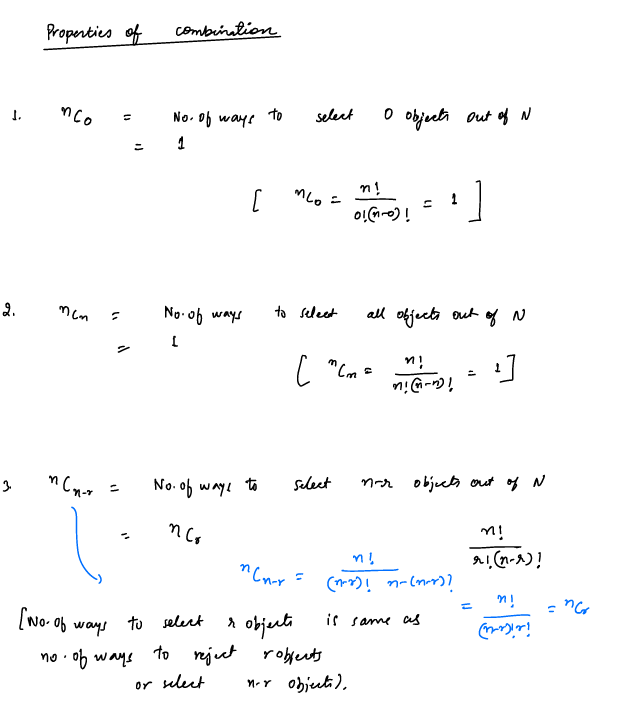 Properties of combination
1. ⁿC₀ = No. of ways to select 0 objects out of N
= 1
[ ⁿC₀ = n! / 0!(n-0)! = 1 ]
2. ⁿCₙ = No. of ways to select all objects out of N
= 1
[ ⁿCₙ = n! / n!(n-n)! = 1 ]
3. ⁿCₙ₋ᵣ = No. of ways to select n-r objects out of N
= ⁿCᵣ n! / r!(n-r)!
ⁿCₙ₋ᵣ = n! / (n-r)! n-(n-r)! = n! / (n-r)!r! = ⁿCᵣ
[No. of ways to select r objects is same as
no. of ways to reject r objects
or select n-r objects).